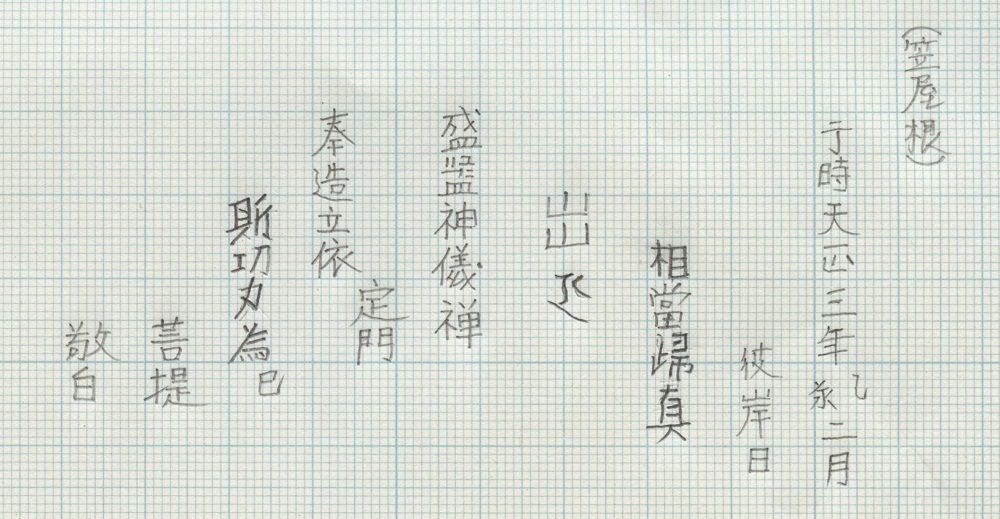 （笠屋根）
于時天正三年乙亥二月
彼岸日
相當帰真
出
盛盌神儀禅
定門
奉造立依
斯功力為己
菩提
敬白